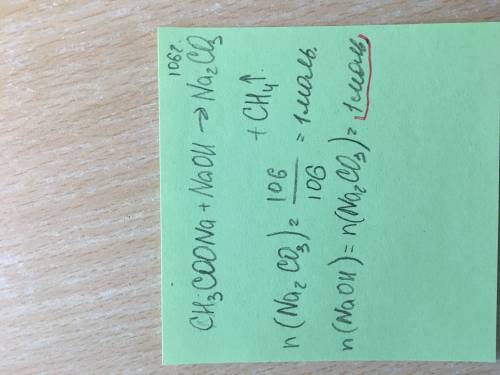 106г.
CH₃COONa + NaOH → Na₂CO₃
+ CH₄↑.
n(Na₂CO₃) = 106/106 = 1 моль.
n(NaOH) = n(Na₂CO₃) = 1 моль